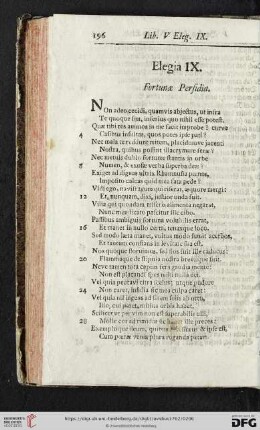 196 Lib. V Eleg. IX.
Elegia IX.
Fortunæ Perfidia.
NOn adeo cecidi, quamvis abjectus, ut infra
Te quoque sim, inferius quo nihil esse potest.
Quæ tibi res animos in me facit improbe? curve
4 Casibus insultas, quos potes ipse pati?
Nec mala te reddunt mitem, placidumve jacenti
Nostra, quibus possint illacrymare feræ?
Nec metuis dubio fortunæ stantis in orbe
8 Numen, & exosæ verba superba Deæ?
Exiget ad dignas ultrix Rhamnusia pœnas,
Imposito calcas quid mea fata pede?
Vidi ego, navifragum qui riserat, æquore mergi:
12 Et, nunquam, dixi, justior unda fuit.
Vilia qui quondam miseris alimenta negarat,
Nunc mendicato pascitur ille cibo.
Passibus ambiguis fortuna volubilis errat,
16 Et manet in nullo certa, tenaxque loco.
Sed modo læta manet, vultus modo sumit acerbos,
Et tantum constans in levitate sua est.
Nos quoque floruimus, sed flos fuit ille caducus:
20 Flammaque de stipula nostra brevisque fuit.
Neve tamen tota capias fera gaudia mente:
Non est placandi spes mihi nulla Dei.
Vel quia peccavi citra scelus: utque pudore
24 Non caret, invidia sic mea culpa caret:
Vel quia nil ingens ad finem solis ab ortu,
Illo, cui paret, mitius orbis habet.
28
Exemploque Deum, quibus
Cum pœnæ venia plura roganda petam.
https://digi.ub.uni-heidelberg.de/diglit/
DFG